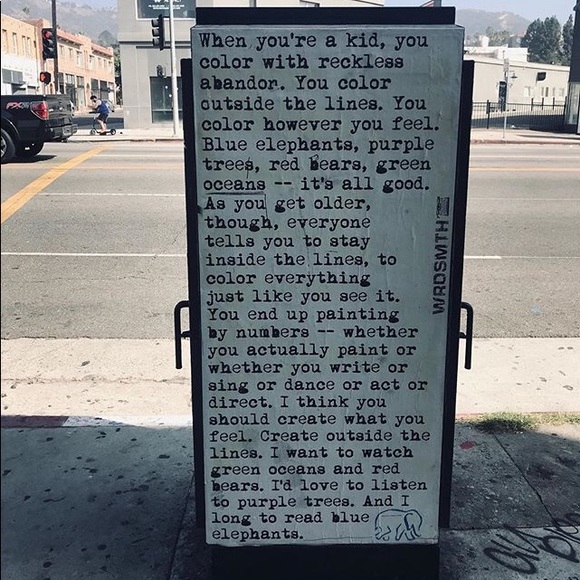 When you're a kid, you
color with reckless
abandon. You color
outside the lines. You
color however you feel.
Blue elephants, purple
trees, red bears, green
oceans -- it's all good.
As you get older,
though, everyone
tells you to stay
inside the lines, to
color everything
just like you see it.
You end up painting
by numbers -- whether
you actually paint or
whether you write or
sing or dance or act or
direct. I think you
should create what you
feel. Create outside the
lines. I want to watch
green oceans and red
bears. I'd love to listen
to purple trees. And I
long to read blue
elephants.
WRDSMTH
FX4